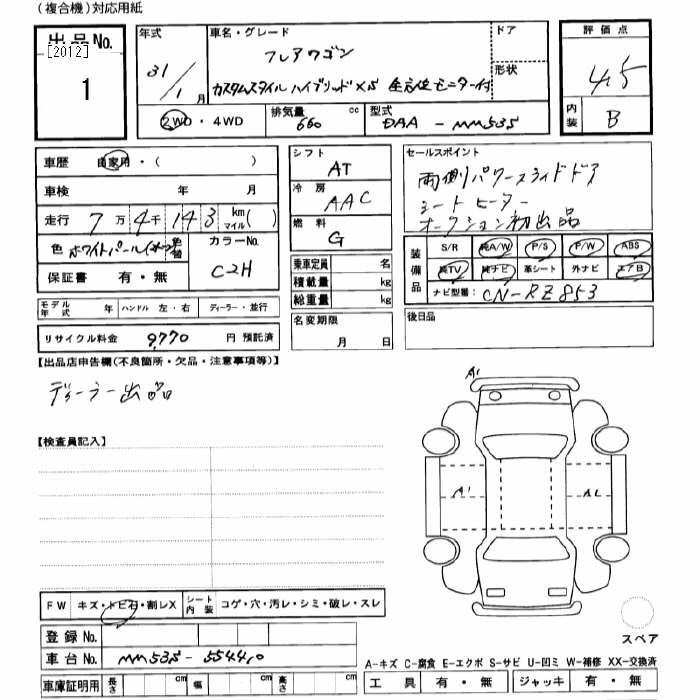 (複合機)対応用紙
出品No.
[2012]
1
年式
31/1月
車名・グレード
フレアワゴン
カスタムスタイル ハイブリッドXS 全方位モニター付
ドア
形状
評価点
4.5
内装
B
2WD・4WD
排気量 660 cc
型式 DAA-MM53S
車歴 自家用・( )
車検 年 月
走行 7万4千143 km マイル( )
色 ホワイトパール 色替
カラーNo. C2H
保証書 有・無
モデル年式 年 ハンドル 左・右 ディーラー・並行
リサイクル料金 9,770 円 預託済
シフト AT
冷房 AAC
燃料 G
乗車定員 名
積載量 kg
総重量 kg
名変期限
月 日
セールスポイント
両側パワースライドドア
シートヒーター
オークション初出品
装備品
S/R 純A/W P/S P/W ABS
純TV 純ナビ 革シート 外ナビ エアB
ナビ型番: CN-RZ853
後日品
【出品店申告欄(不良箇所・欠品・注意事項等)】
ディーラー出品
【検査員記入】
A1
A1
FW キズ・トビ石・割レX
シート内装 コゲ・穴・汚レ・シミ・破レ・スレ
登録No.
車台No. MM53S-554410
車庫証明用 長さ cm 幅 cm 高さ cm
スペア
A-キズ C-腐食 E-エクボ S-サビ U-凹ミ W-補修 XX-交換済
工具 有・無 ジャッキ 有・無